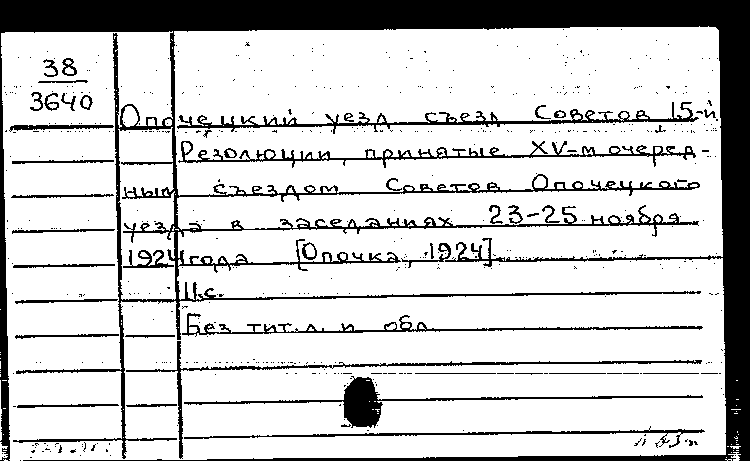 38
3640
Опочецкий уезд съезд Советов 15-й
Резолюции, принятые XV-м очеред-
ным съездом Советов Опочецкого
уезда в заседаниях 23-25 ноября
1924 года [Опочка, 1924].
11 с.
Без тит. л. и обл.